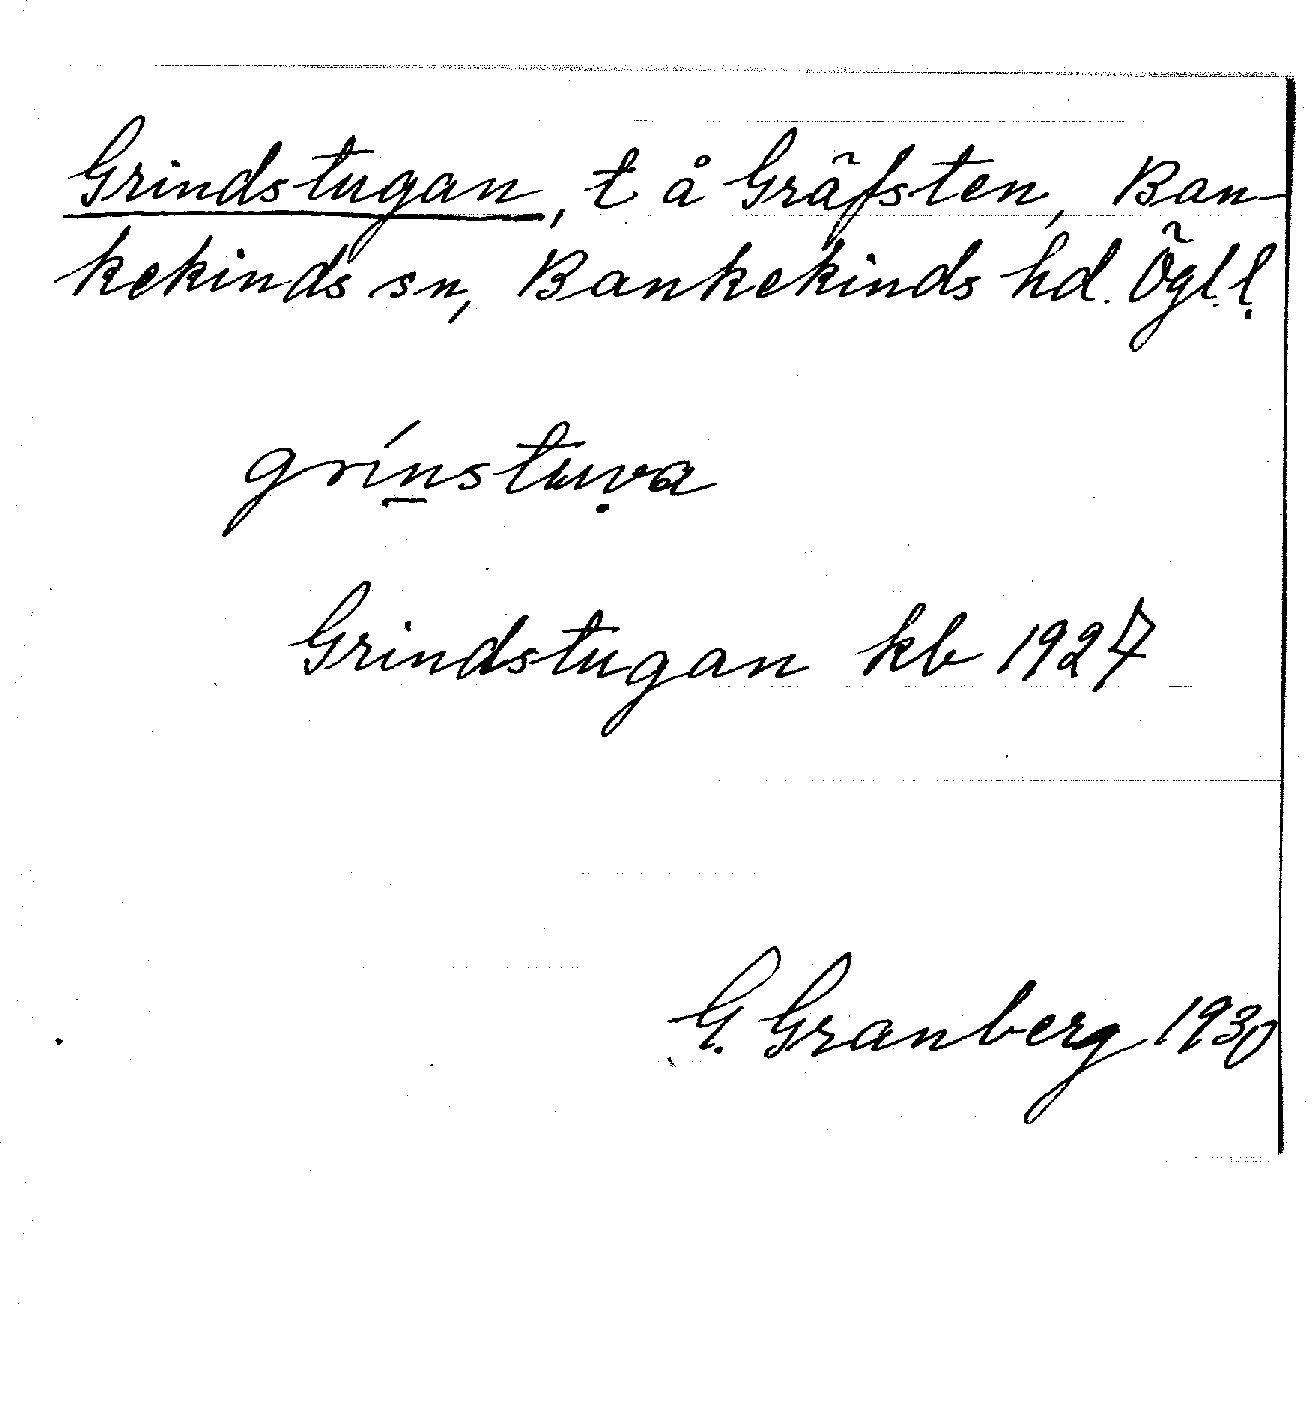 Grindstugan, t å Gräfsten, Ban-
kekinds sn, Bankekinds hd. Ögl.l.
grínstuva
Grindstugan kb 1927
G. Granberg 1930